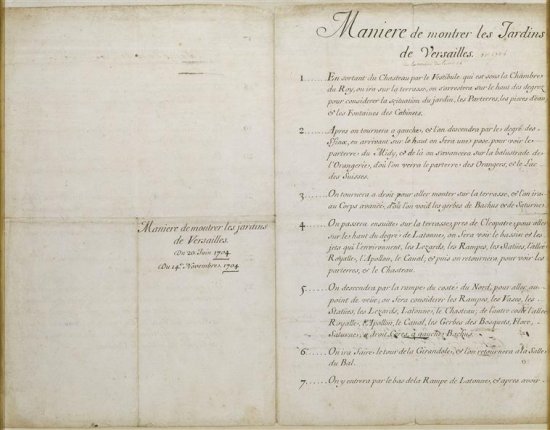 Maniere de montrer les jardins
de Versailles.
Du 20. Juin 1704.
Du 24.e Novembre 1704
Maniere de montrer les Jardins
de Versailles.
1...... En sortant du Chasteau par le Vestibule qui est sous la Chambre
du Roy, on ira sur la terrasse, on s'arrestera sur le haut des degrez
pour considerer la scituation du jardin, les Parterres, les pieces d'eau
et les Fontaines des Cabinets.
2....... Apres on tournera a gauche, et l'on descendra par le degré des
Sfinx, en arrivant sur le haut on fera une pose pour voir le
parterre du Midy, et de là on s'avancera sur la balustrade de
l'Orangerie, d'où l'on verra le parterre des Orangers, et le Lac
des Suisses.
3....... On tournera a droit pour aller monter sur la terrasse, et l'on ira
au Corps avancé, d'où l'on void les gerbes de Bachus et de Saturne.
4....... On passera ensuitte sur la terrasse, pres de Cleopatre, pour aller
sur le haut du degré de Latonne, on fera voir le bassin et les
jets qui l'environnent, les Lezards, les Rampes, les Statües, l'allée
Royalle, l'Apollon, le Canal, et puis on retournera pour voir les
parterres, et le Chasteau.
5....... On descendra par la rampe du costé du Nord, pour aller au
point de veüe, on fera considerer les Rampes, les Vases, les
Statües, les Lezards, Latonne, le Chasteau; de l'autre costé l'allée
Royalle, l'Apollon, le Canal, les Gerbes des Bosquets, Flore,
Saturne, a droit Cerés, a gauche Bachus.
6....... On ira faire le tour de la Girandole, et l'on retournera a la Salle
du Bal.
7....... On y entrera par le bas de la Rampe de Latonne, et apres avoir